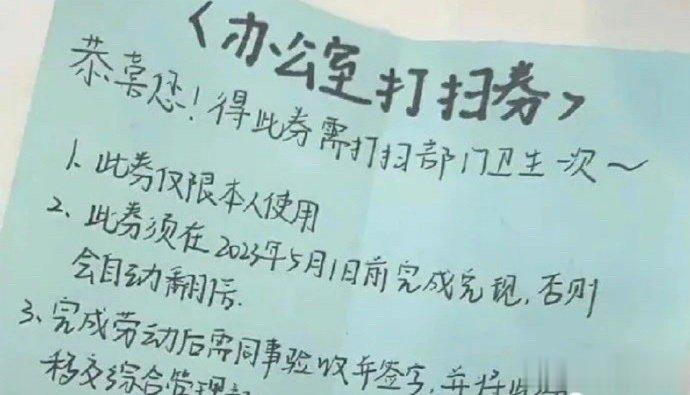 <办公室打扫券>
恭喜您！得此券需打扫部门卫生一次～
1、此券仅限本人使用
2、此券须在2023年5月1日前完成兑现，否则
会自动翻倍.
3、完成劳动后需同事验收并签字，并将此
移交综合管理部